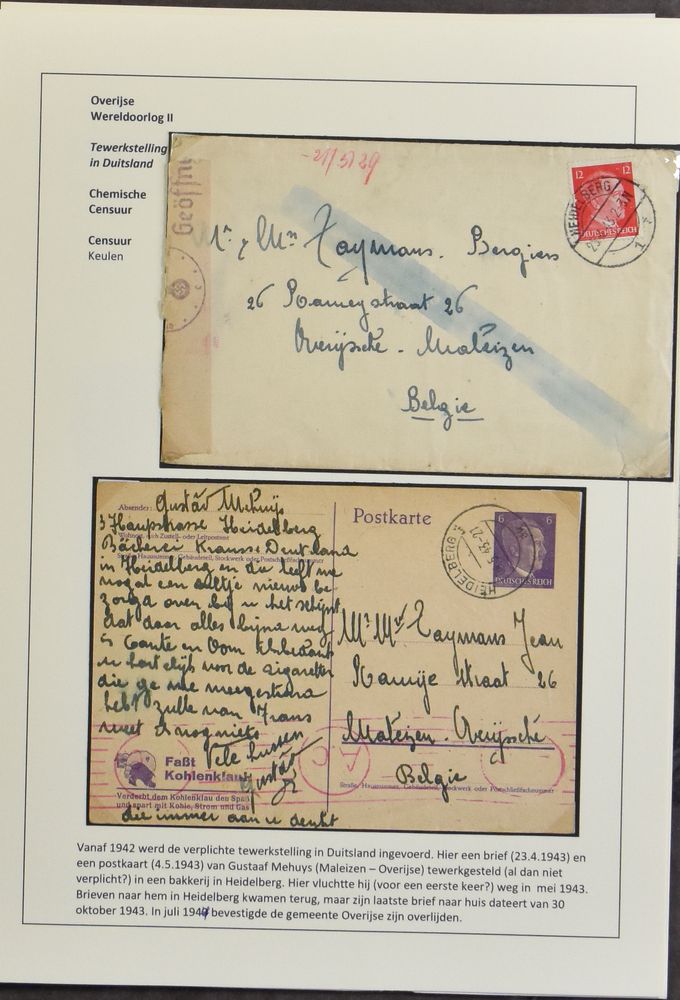 Overijse
Wereldoorlog II
Tewerkstelling
in Duitsland
Chemische
Censuur
Censuur
Keulen
Geöffn
-21/5/29
12 12
HEIDELBERG
DEUTSCHES REICH
Mr & Mme Taymans. Bergiers
26 Rameystraat 26
Overijssche - Maleizen
Belgie
Absender: Gustav Mehuys
3 Haupstrasse Heidelberg
Wohnort, auch Zustell- oder Leitpostamt
Bäckerei Krausse Deutland
Straße, Hausnummer, Gebäudeteil, Stockwerk oder Postschließfachnummer
in Heidelberg en die leeft me
nogal een beetje nieuws be
zorgd over bij u het schijnt
dat daar alles bijna weg
is Tante en Oom
u hartelijk voor de sigaretten
die ge me meegestuurd
hebt zulle van Frans
weet ik nog niets
Vele kussen
Gustav
die immer aan u denkt
Faßt
Kohlenklau!
Verderbt dem Kohlenklau den Spaß
und spart mit Kohle, Strom und Gas
Postkarte
HEIDELBERG
6 6
DEUTSCHES REICH
Mr Mme Taymans Jean
Rameije straat 26
Maleizen-Overijssche
Belgie
Straße, Hausnummer, Gebäudeteil, Stockwerk oder Postschließfachnummer
Vanaf 1942 werd de verplichte tewerkstelling in Duitsland ingevoerd. Hier een brief (23.4.1943) en
een postkaart (4.5.1943) van Gustaaf Mehuys (Maleizen – Overijse) tewerkgesteld (al dan niet
verplicht?) in een bakkerij in Heidelberg. Hier vluchtte hij (voor een eerste keer?) weg in mei 1943.
Brieven naar hem in Heidelberg kwamen terug, maar zijn laatste brief naar huis dateert van 30
oktober 1943. In juli 194 bevestigde de gemeente Overijse zijn overlijden.